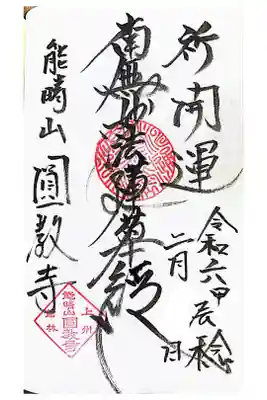 祈開運
南無妙法蓮華経
令和六甲辰稔
二月 日
能晴山 圓教寺
上州
能晴山
圓教寺
館林